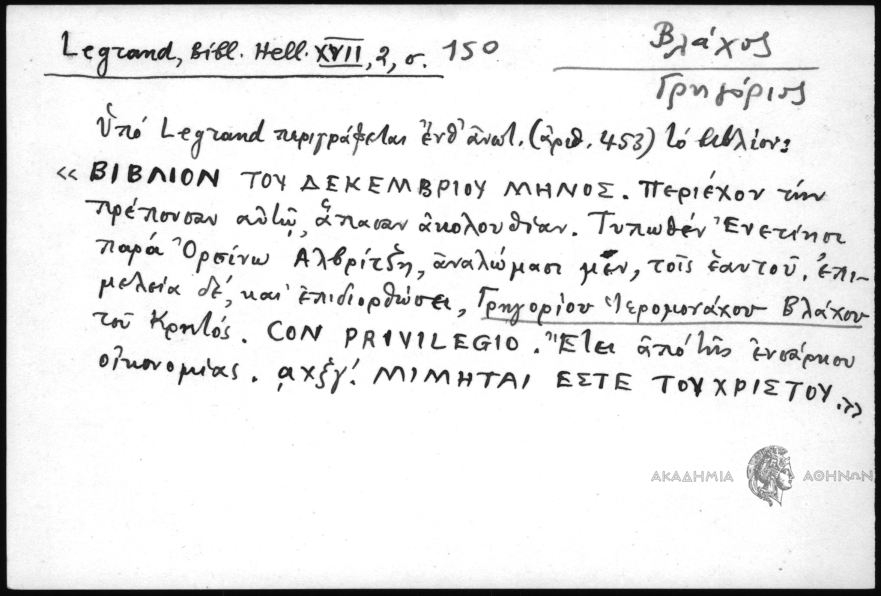 Legrand, Bibl. Hell. XVII, 2, σ. 150
Βλάχος
Γρηγόριος
Ὑπό Legrand περιγράφεται ἐνθ' ἀνωτ. (ἀριθ. 453) τό βιβλίον:
«ΒΙΒΛΙΟΝ ΤΟΥ ΔΕΚΕΜΒΡΙΟΥ ΜΗΝΟΣ. Περιέχον τήν
πρέπουσαν αὐτῷ, ἅπασαν ἀκολουθίαν. Τυπωθέν Ἐνετίησι
παρά Ὀρσίνω Ἀλβρίτζη, ἀναλώμασι μέν, τοῖς ἑαυτοῦ, ἐπι-
μελεία δέ, καί ἐπιδιορθώσει, Γρηγορίου Ἱερομονάχου Βλάχου
τοῦ Κρητός. CON PRIVILEGIO. Ἔτει ἀπό τῆς ἐνσάρκου
οἰκονομίας. ͵αχξγ΄. ΜΙΜΗΤΑΙ ΕΣΤΕ ΤΟΥ ΧΡΙΣΤΟΥ.»
ΑΚΑΔΗΜΙΑ ΑΘΗΝΩΝ